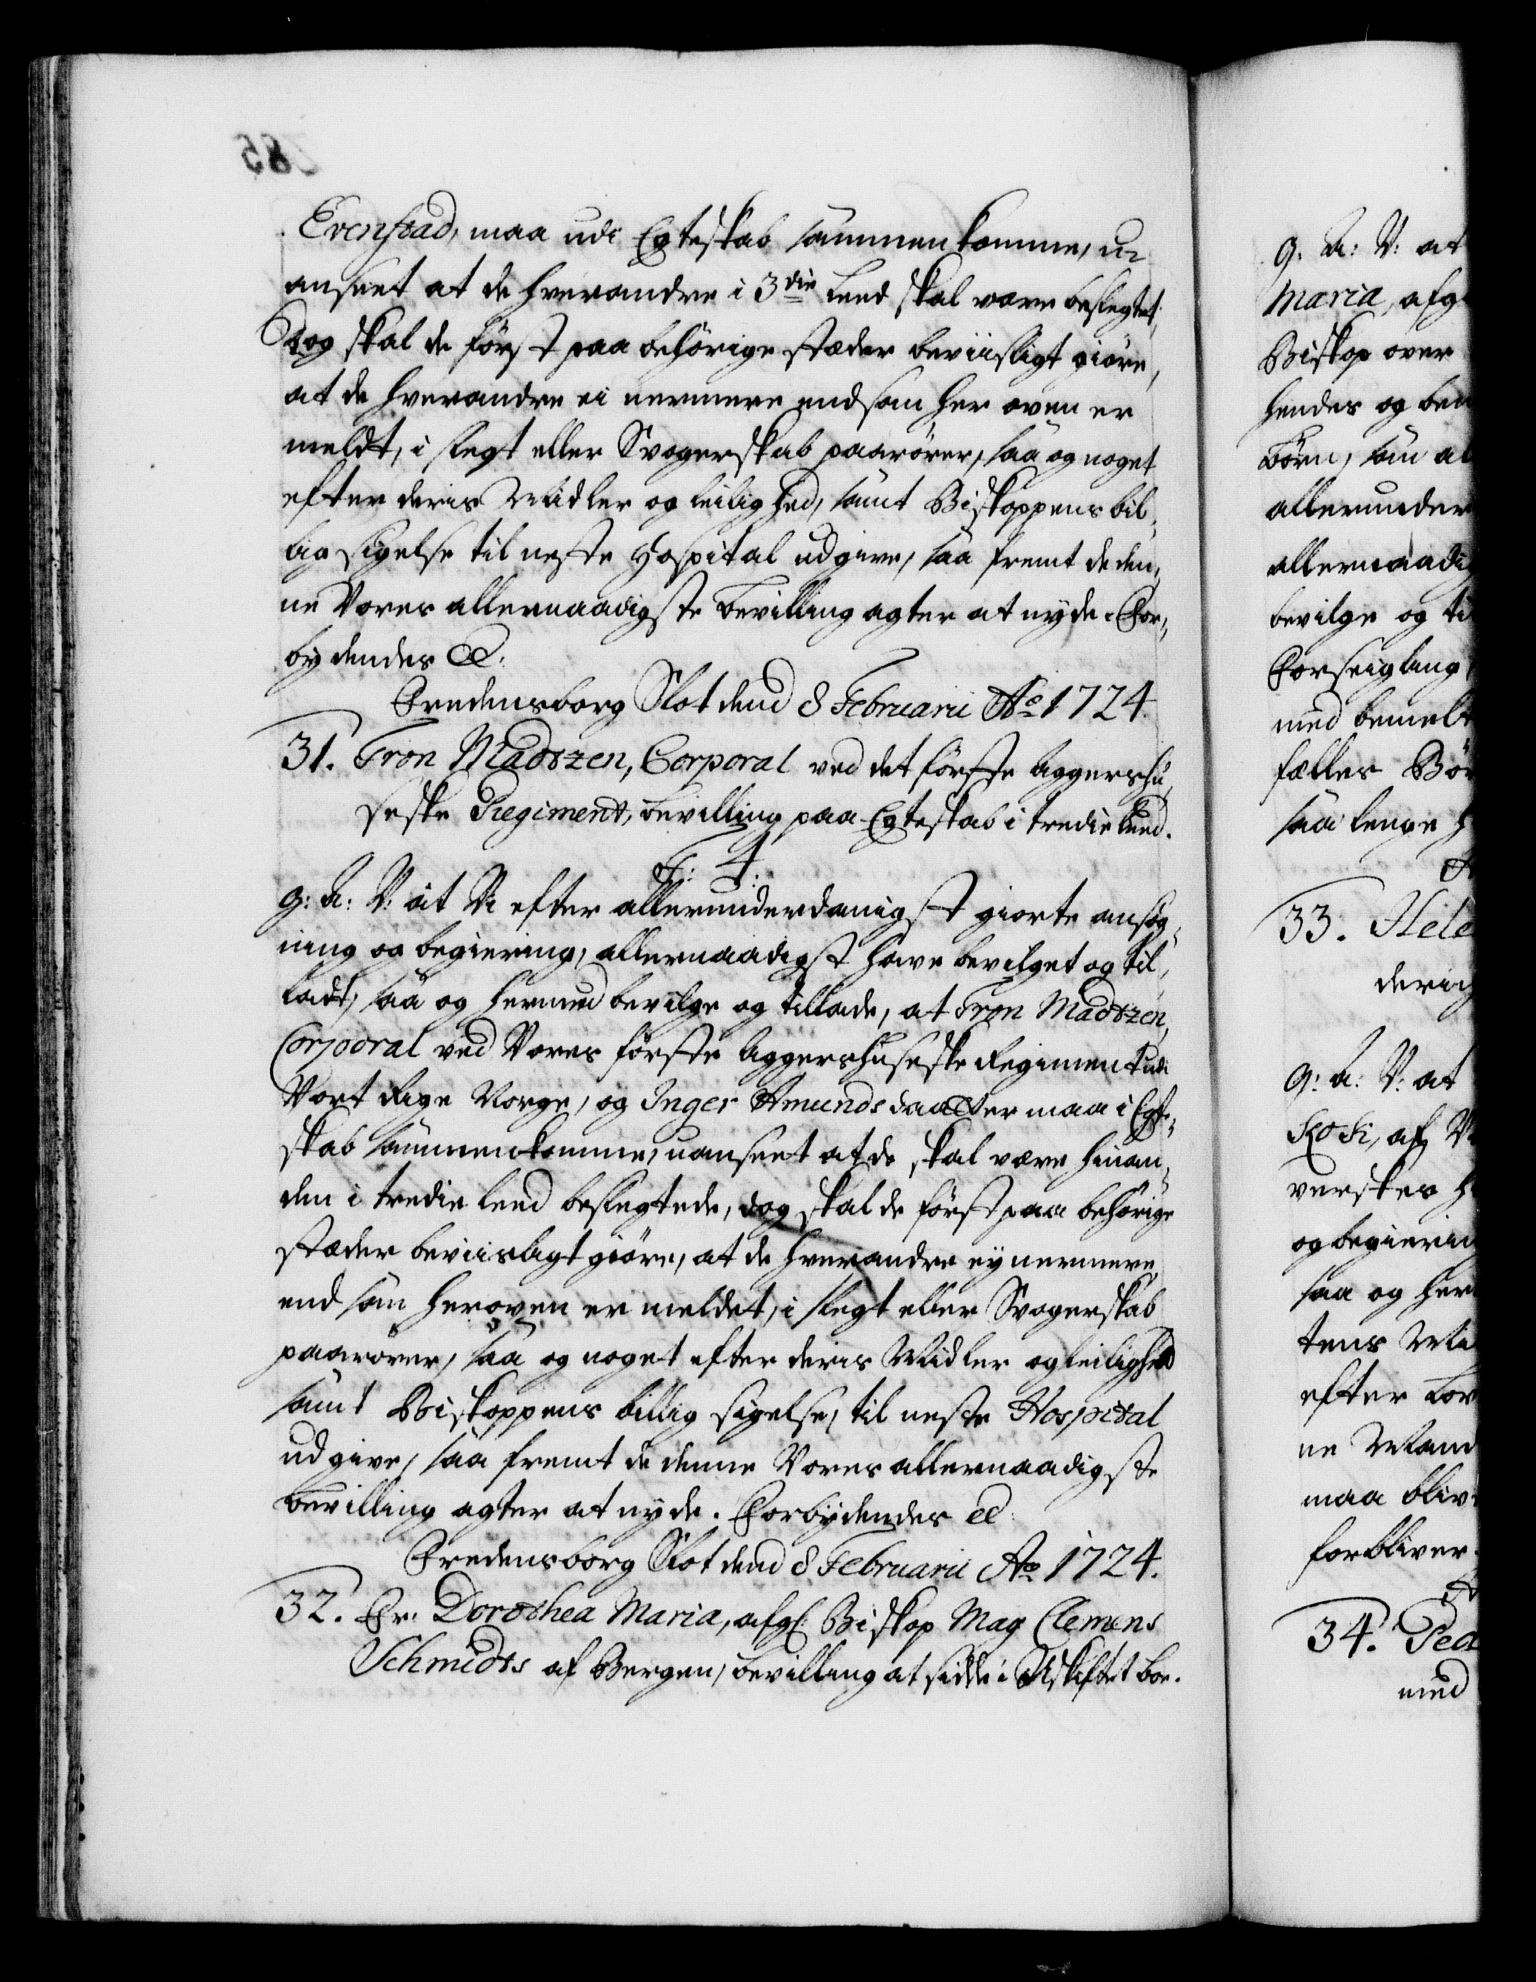 Evenstad, maa udi Egteskab sammenkomme, u-
anseet at de hverandre i 3die Leed skal være beslegtet,
Dog skal de først paa behörige stæder beviisligt giöre,
at de hverandre ei nermere end som her oven er
meldt, i slegt eller Svogerskab paarörer, saa og noget
efter deris Midler og leilighed, samt Biskoppens bil-
lig sigelse til neste Hospital udgive, saa fremt de den-
ne Vores allernaadigste bevilling agter at nyde. For-
bydendes etc:
Fredensborg Slot dend 8 Februarii Ao 1724.
31. Tron Madszen, Corporal ved det förste Aggershu-
seske Regiment, bevilling paa Egteskab i tredie leed.
F. 4.
G: A: V: at Vi efter allerunderdanigst giorte ansøg-
ning og begiering, allernaadigst have bevilget og til-
ladt, saa og hermed bevilge og tillade, at Tron Madszen,
Corporal ved Vores förste Aggershuseske Regiment udi
Vort Rige Norge, og Inger Amunds daatter maa i Egte-
skab sammenkomme, uanseet at de skal være hinan-
den i tredie leed beslegtede, dog skal de først paa behörige
stæder beviisligt giöre, at de hverandre ey nermere
end som heroven er meldet, i slegt eller Svogerskab
paarörer, saa og noget efter deris Midler og leilighed
samt Biskoppens billig sigelse, til neste Hospital
udgive, saa fremt de denne Vores allernaadigste
bevilling agter at nyde. Forbydendes etc
Fredensborg Slot dend 8 Februarii Ao 1724.
32. Fr. Dorothea Maria, afgl: Biskop Mag Clemens
Schmidts af Bergen, bevilling at sidde i Uskiftet boe.
G: A: V: at
Maria, afg
Biskop over
hendes og ben
börn, som al
allerunder
allernaadig
bevilge og ti
Forseigling
med bemelte
fælles Bör
saa lenge h
33. Hele
derig
G: A: V: at
af V
verskes h
og begiering
saa og her
tens Mi
efter Lov
ne Mand
maa blive
forbliver.
34. Ped
med